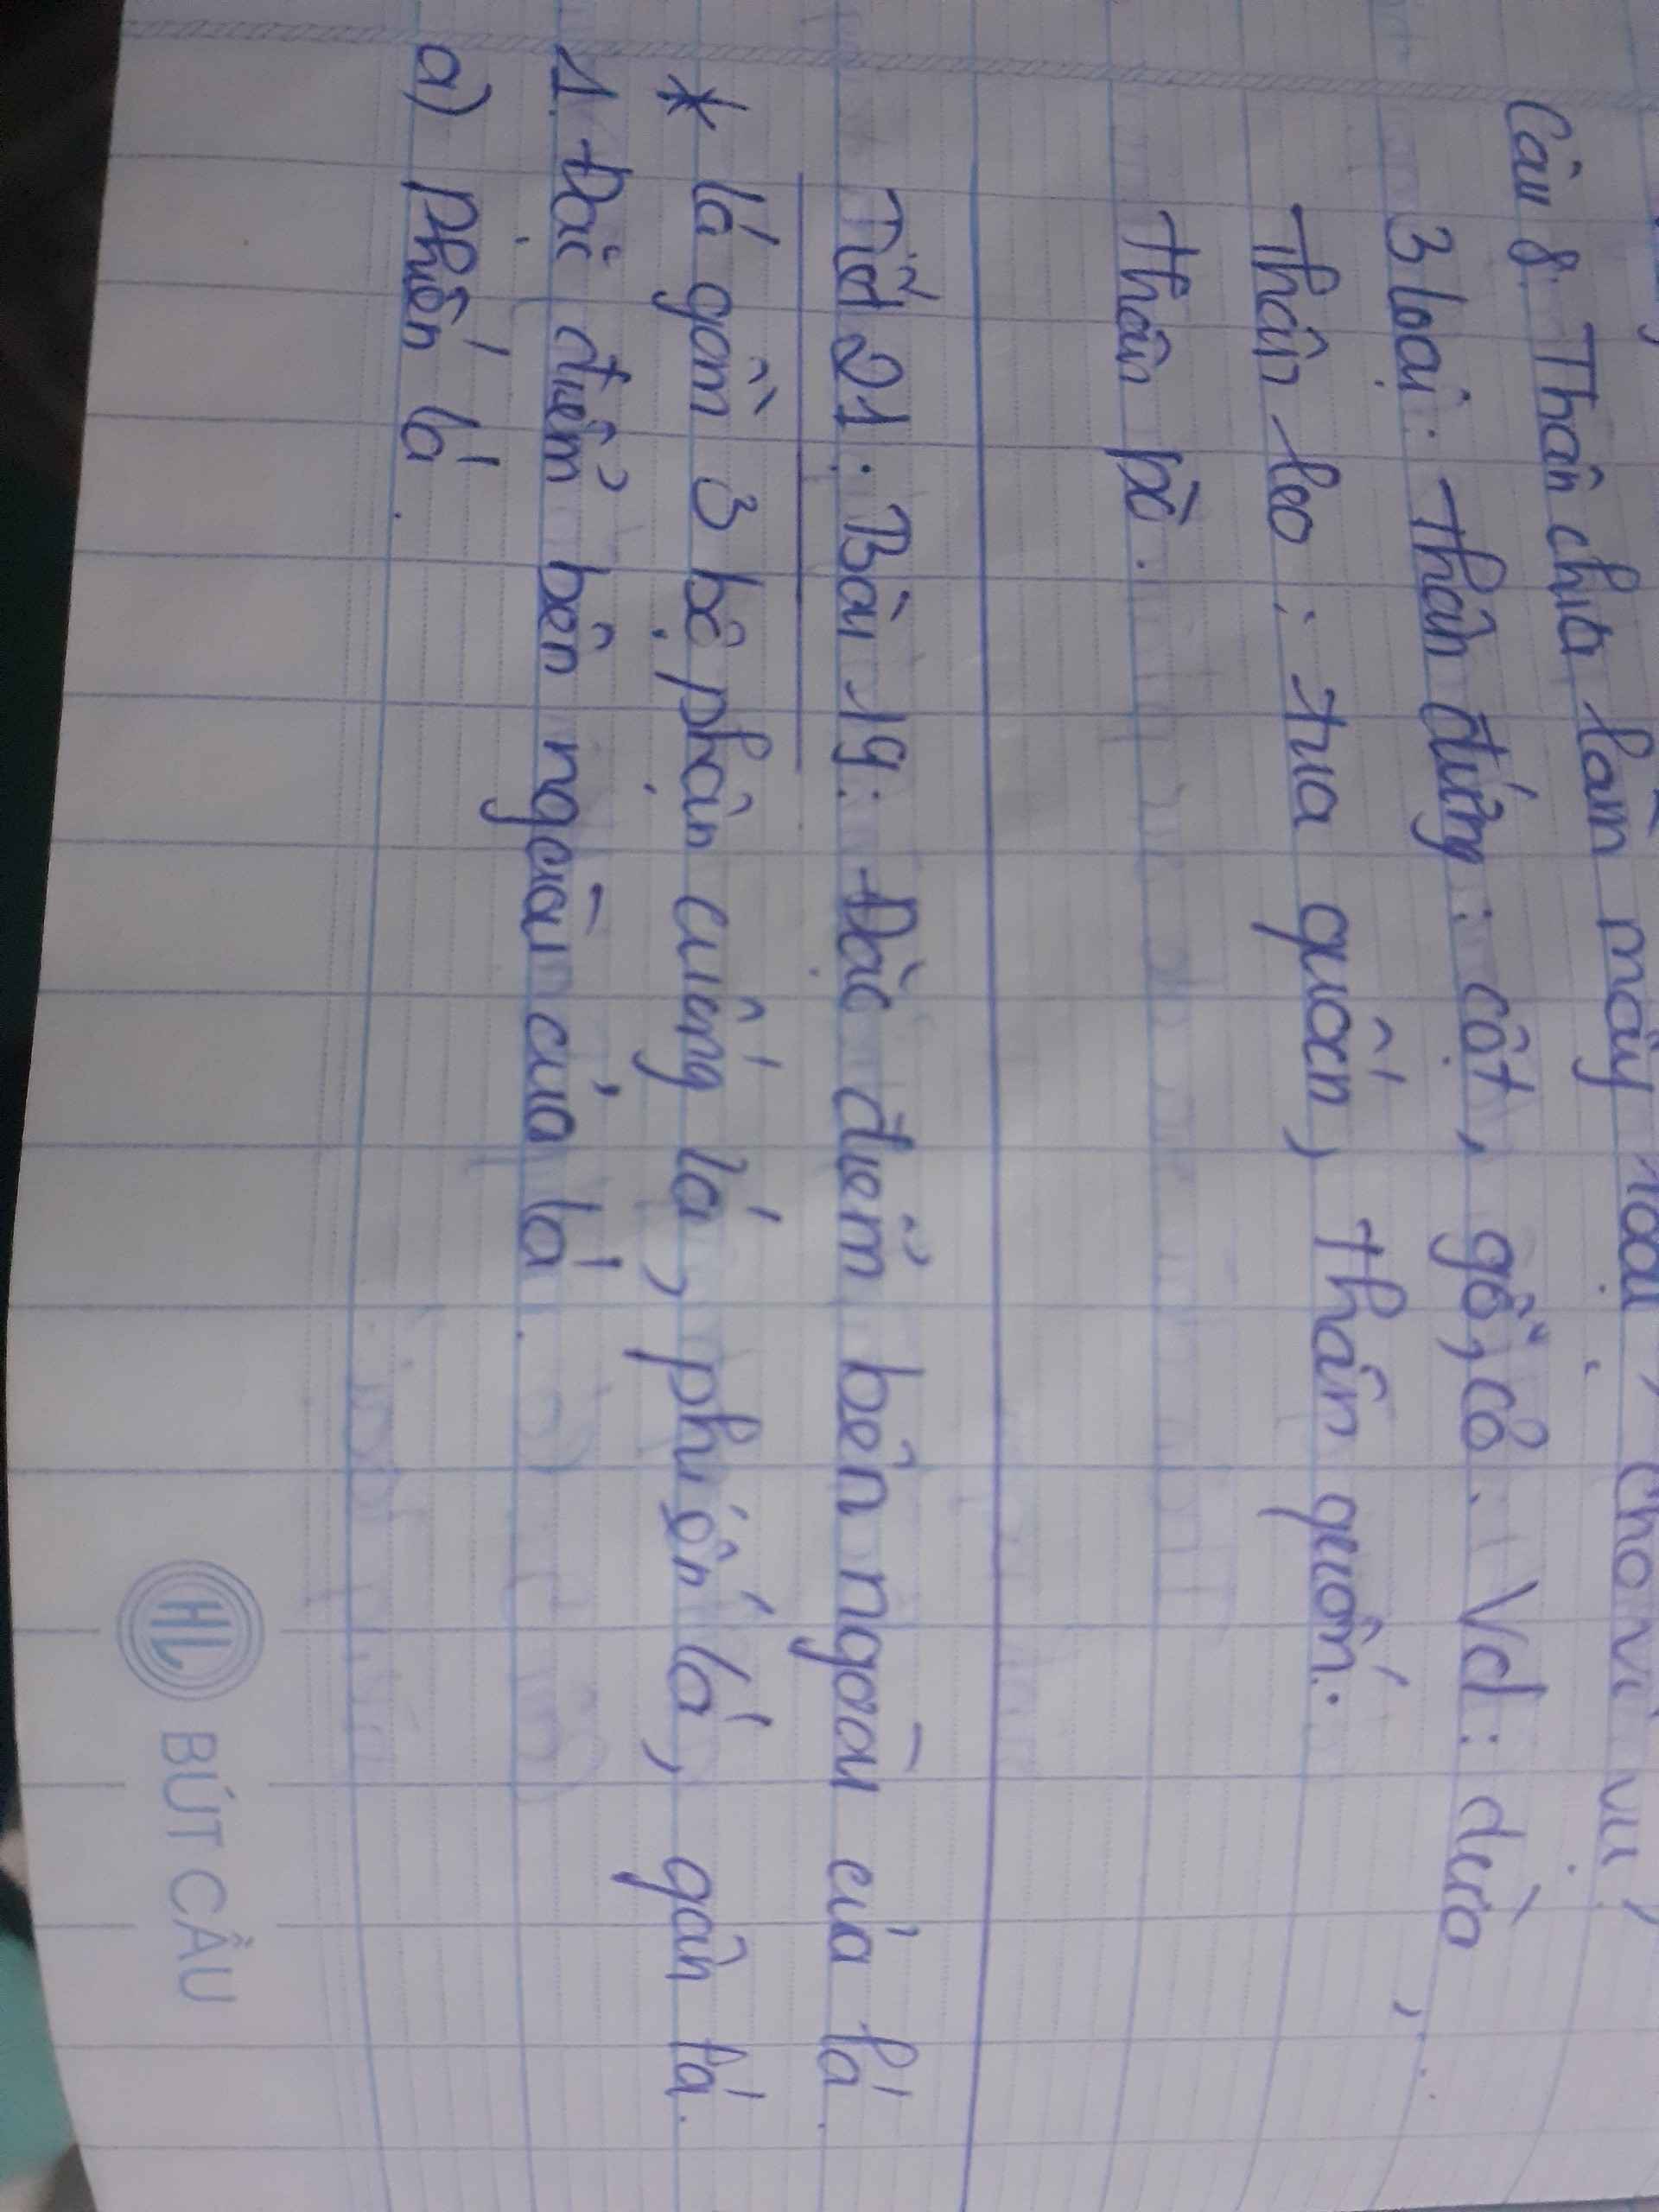 Câu 8: Thân chia làm mấy loại, cho ví vụ?
3 loại: Thân đứng: cột, gỗ, cỏ. Vd: dừa,
Thân leo: tua quấn, thân quấn.
Thân bò.
Tiết 21: Bài 19: Đặc điểm bên ngoài của lá.
* lá gồm 3 bộ phận cuống lá, phiến lá, gân lá.
1. Đặc điểm bên ngoài của lá.
a) Phiến lá.
HL BÚT CẦU